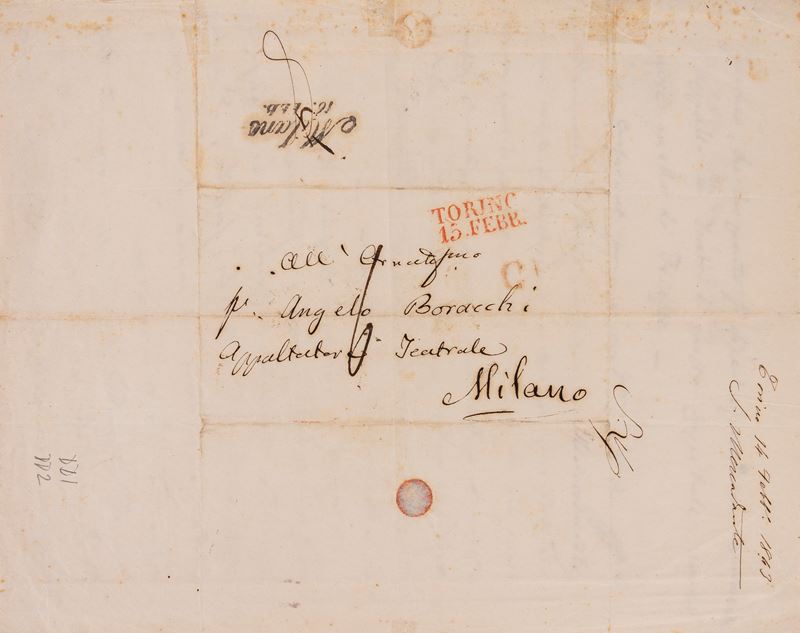 Milano
16. FEB.
TORINO
15.FEBB.
All' Ornatissmo
Sr. Angelo Boracchi
Appaltatore Teatrale
Milano
Torino 14 Febb. 1843
S. Mercadante